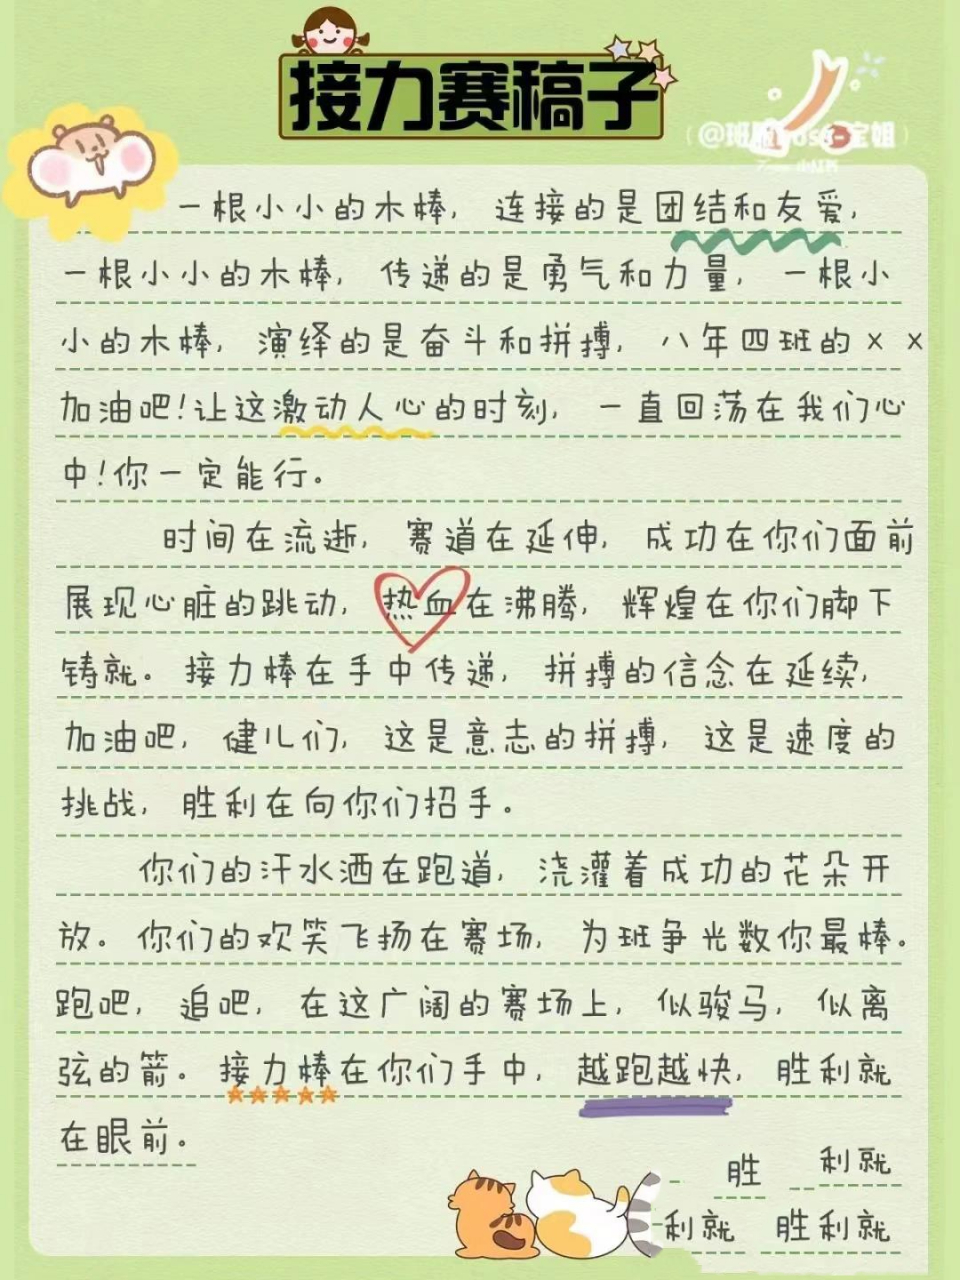 接力赛稿子
一根小小的木棒，连接的是团结和友爱，
一根小小的木棒，传递的是勇气和力量，一根小
小的木棒，演绎的是奋斗和拼搏，八年四班的××
加油吧！让这激动人心的时刻，一直回荡在我们心
中！你一定能行。
时间在流逝，赛道在延伸，成功在你们面前
展现心脏的跳动，热血在沸腾，辉煌在你们脚下
铸就。接力棒在手中传递，拼搏的信念在延续，
加油吧，健儿们，这是意志的拼搏，这是速度的
挑战，胜利在向你们招手。
你们的汗水洒在跑道，浇灌着成功的花朵开
放。你们的欢笑飞扬在赛场，为班争光数你最棒。
跑吧，追吧，在这广阔的赛场上，似骏马，似离
弦的箭。接力棒在你们手中，越跑越快，胜利就
在眼前。
胜 利就
利就 胜利就